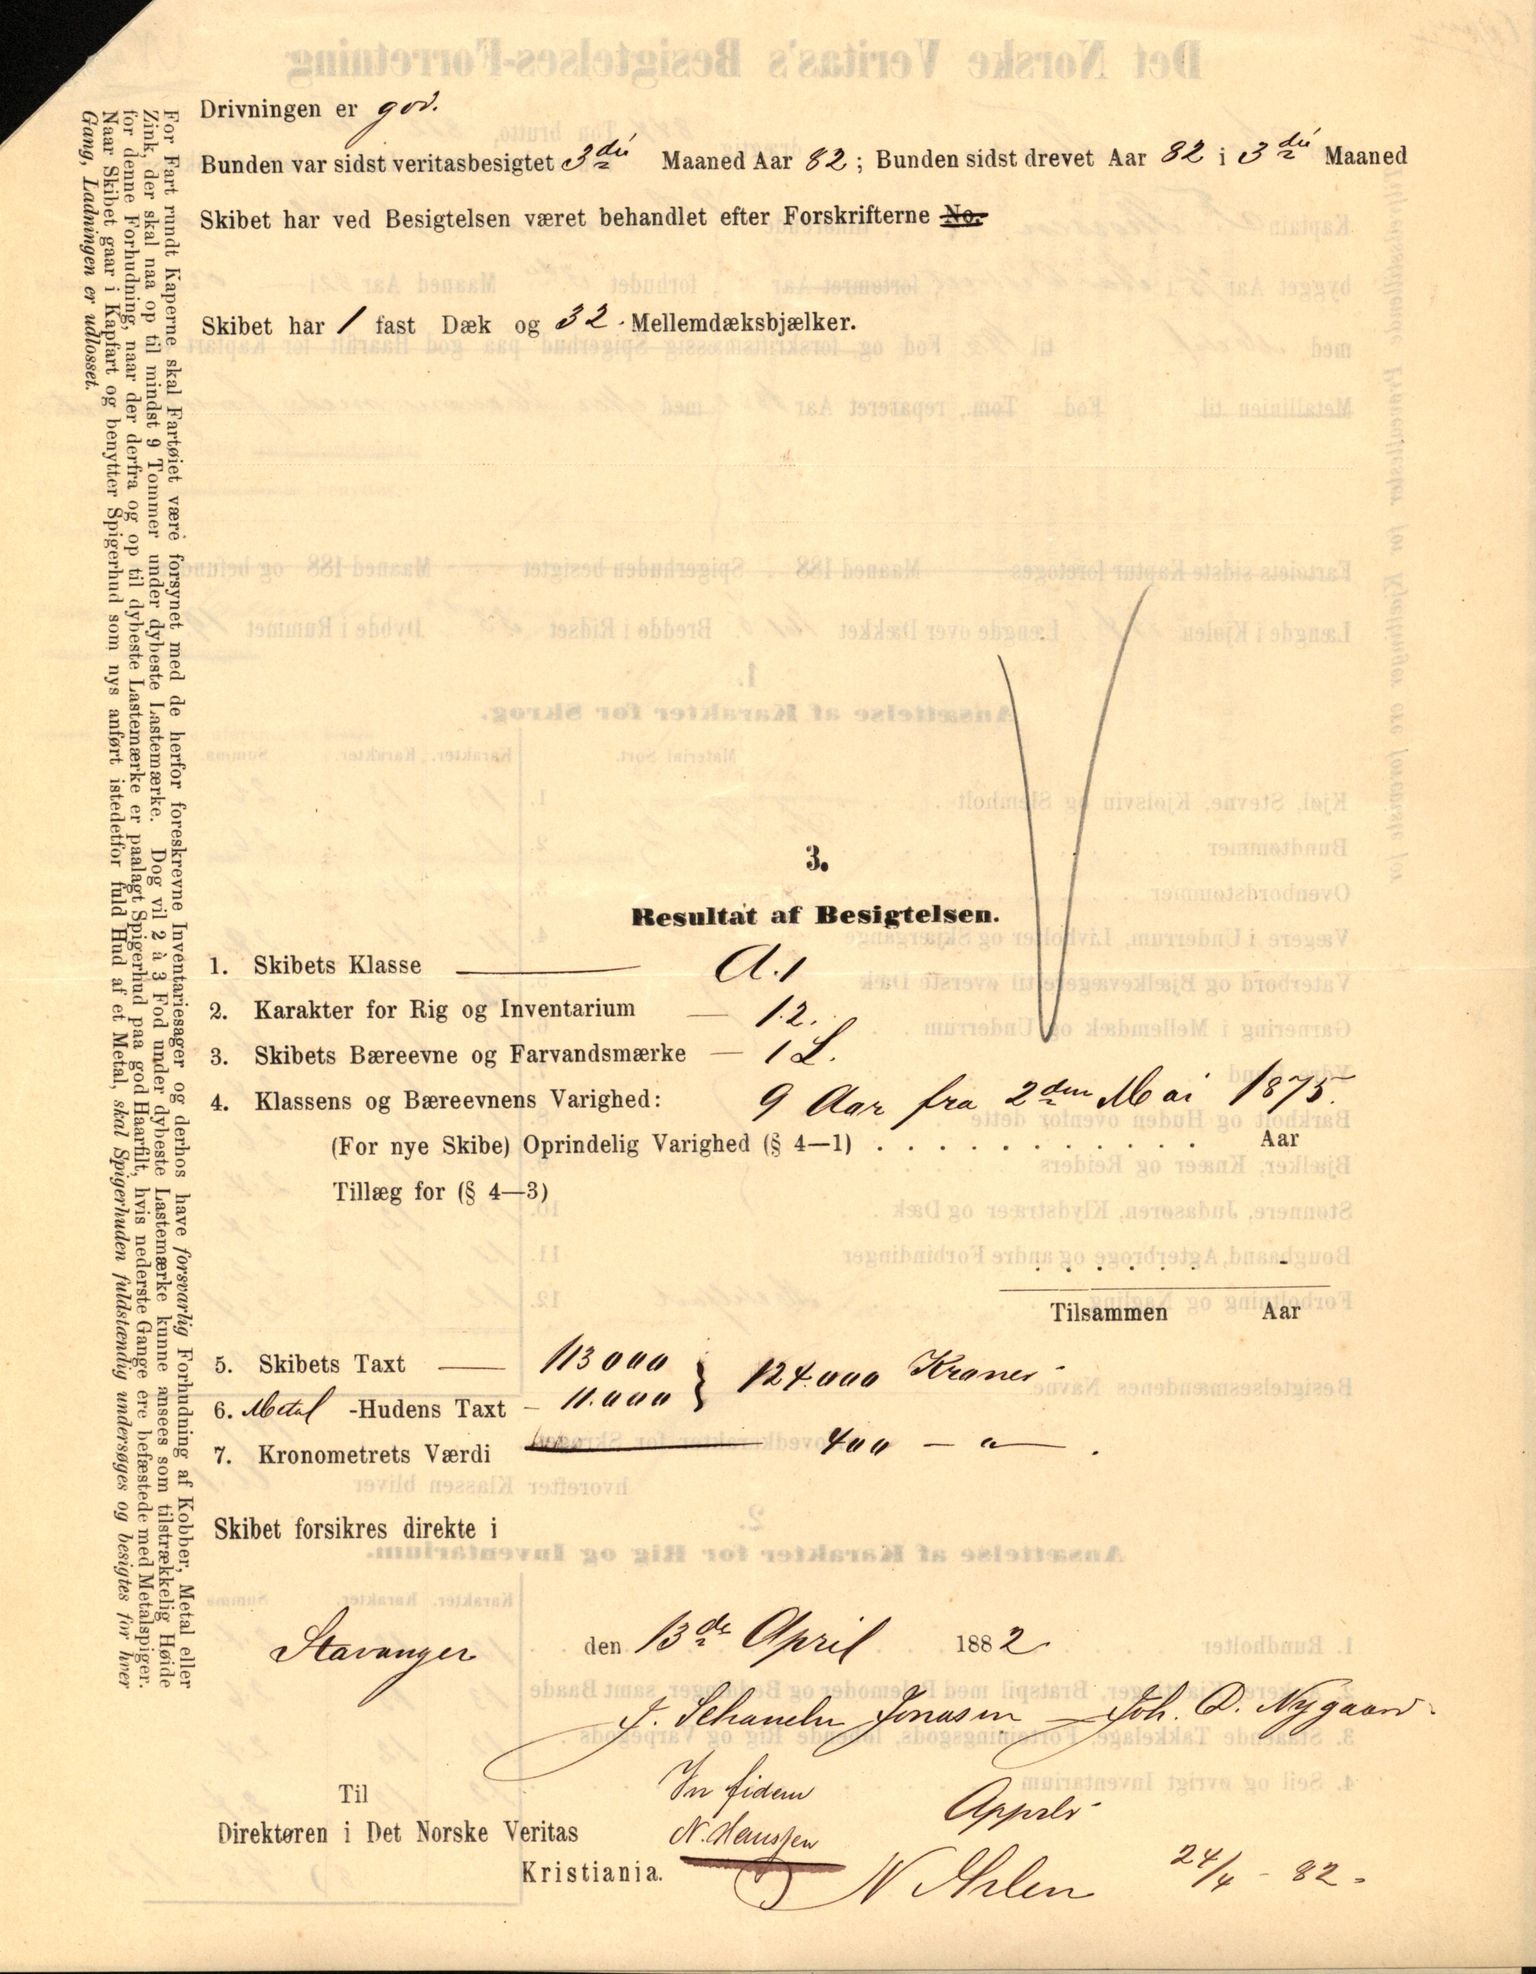 Drivningen er god.
Bunden var sidst veritasbesigtet 3die Maaned Aar 82; Bunden sidst drevet Aar 82 i 3die Maaned
Skibet har ved Besigtelsen været behandlet efter Forskrifterne No.
Skibet har 1 fast Dæk og 32 Mellemdæksbjælker.
For Fart rundt Kaperne skal Fartøiet være forsynet med de herfor foreskrevne Inventariesager og derhos have forsvarlig Forhudning af Kobber, Metal eller
Zink, der skal naa op til mindst 9 Tommer under dybeste Lastemærke. Dog vil 2 à 3 Fod under dybeste Lastemærke kunne ansees som tilstrækkelig Høide
for denne Forhudning, naar der derfra og op til dybeste Lastemærke er paalagt Spigerhud paa god Haarfilt, hvis nederste Gange ere befæstede med Metalspiger.
Naar Skibet gaar i Kapfart og benytter Spigerhud som nys anført istedetfor fuld Hud af et Metal, skal Spigerhuden fuldstændig undersøges og besigtes for hver
Gang, Ladningen er udlosset.
3.
Resultat af Besigtelsen.
1. Skibets Klasse A.1
2. Karakter for Rig og Inventarium — 12.
3. Skibets Bæreevne og Farvandsmærke — 1 L.
4. Klassens og Bæreevnens Varighed: 9 Aar fra 2den Mai 1875.
(For nye Skibe) Oprindelig Varighed (§ 4—1) . . . . . . . . . . . Aar
Tillæg for (§ 4—3)
. . . . . . -
Tilsammen Aar
5. Skibets Taxt — 113000 } 124.000 Kroner
6. Metal -Hudens Taxt — 11.000
7. Kronometrets Værdi 400 — " — .
Skibet forsikres direkte i
Stavanger den 13de April 1882.
J. Schancke Jonasen Joh. D. Nygaard.
Til In fidem Apprb
Direktøren i Det Norske Veritas N. Hanssen
Kristiania. N 24/4 - 82.